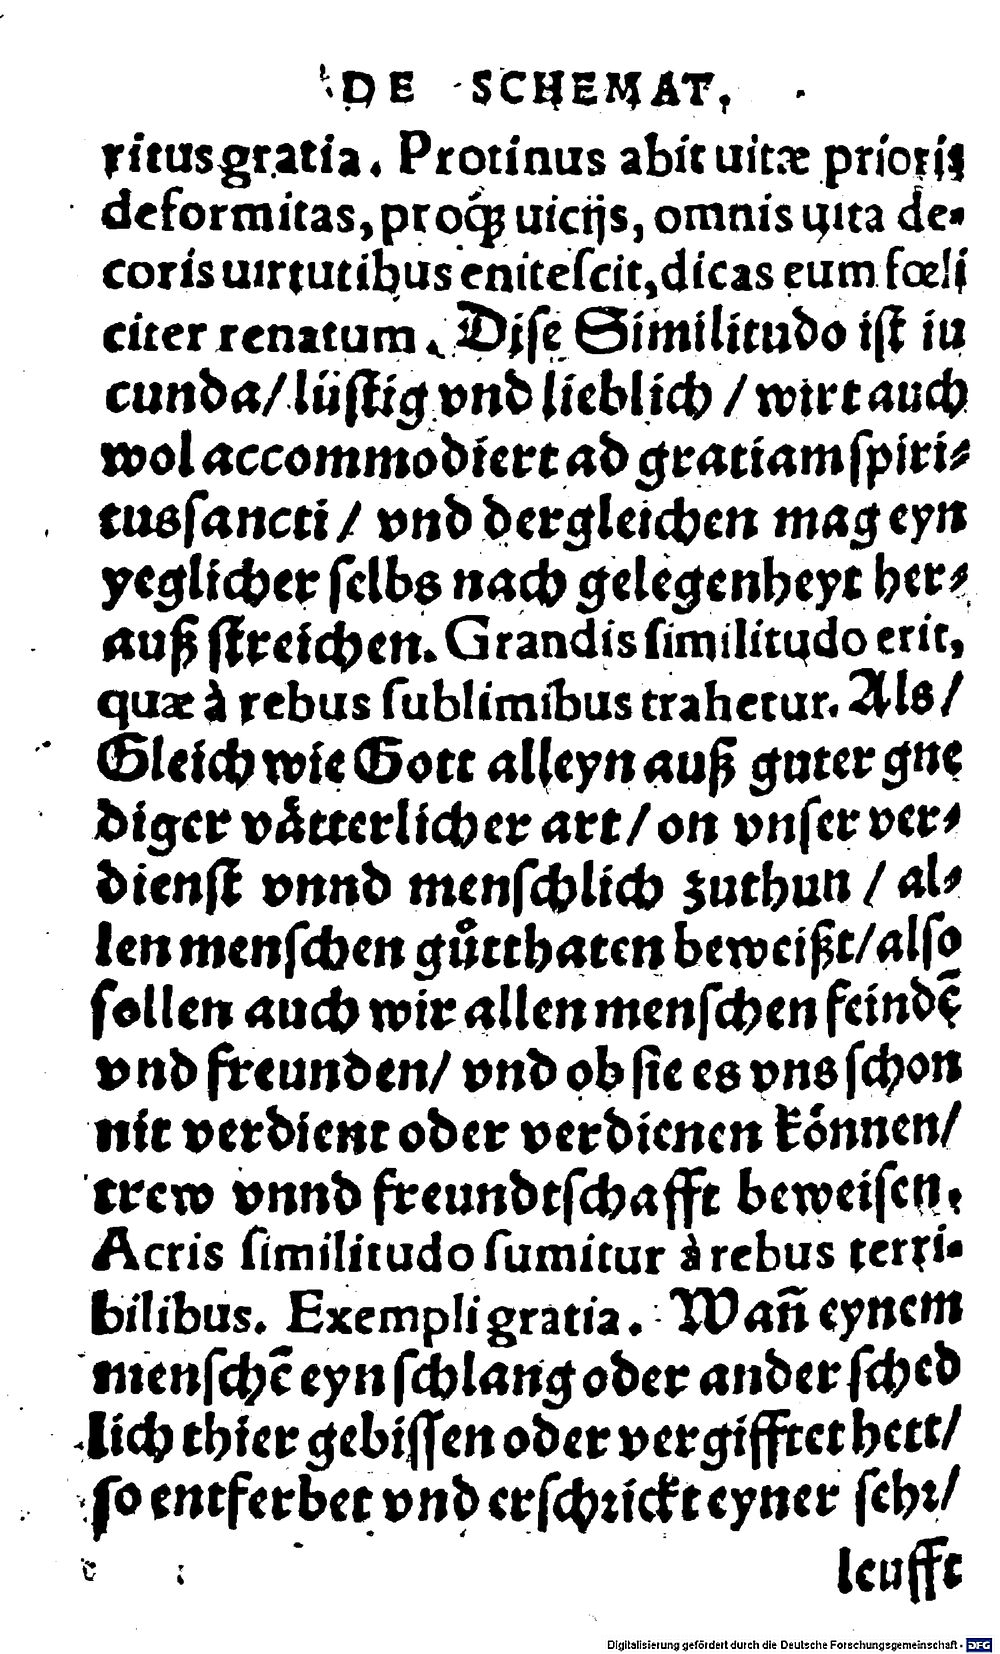 DE SCHEMAT.
ritus gratia. Protinus abit uitæ prioris
deformitas, proq́ꝫ uicijs, omnis uita de-
coris uirtutibus eniteſcit, dicas eum fœli
citer renatum. Diſe Similitudo iſt iu
cunda/ lüſtig vnd lieblich / wirt auch
wol accommodiert ad gratiam ſpiri-
tusſancti / vnd dergleichen mag eyn
yeglicher ſelbs nach gelegenheyt her-
auß ſtreichen. Grandis ſimilitudo erit,
quæ à rebus ſublimibus trahetur. Als /
Gleich wie Gott alleyn auß guter gne
diger vaͤtterlicher art / on vnſer ver-
dienſt vnnd menſchlich zuthun / al-
len menſchen guͦtthaten beweißt/ alſo
ſollen auch wir allen menſchen feindē
vnd freunden/ vnd ob ſie es vns ſchon
nit verdient oder verdienen koͤnnen/
trew vnnd freundtſchafft beweiſen.
Acris ſimilitudo ſumitur à rebus terri-
bilibus. Exempli gratia. Wañ eynem
menſchē eyn ſchlang oder ander ſched
lich thier gebiſſen oder vergifftet hett/
ſo entferbet vnd erſchꝛickt eyner ſehꝛ/
leufft
Digitalisierung gefördert durch die Deutsche Forschungsgemeinschaft - DFG